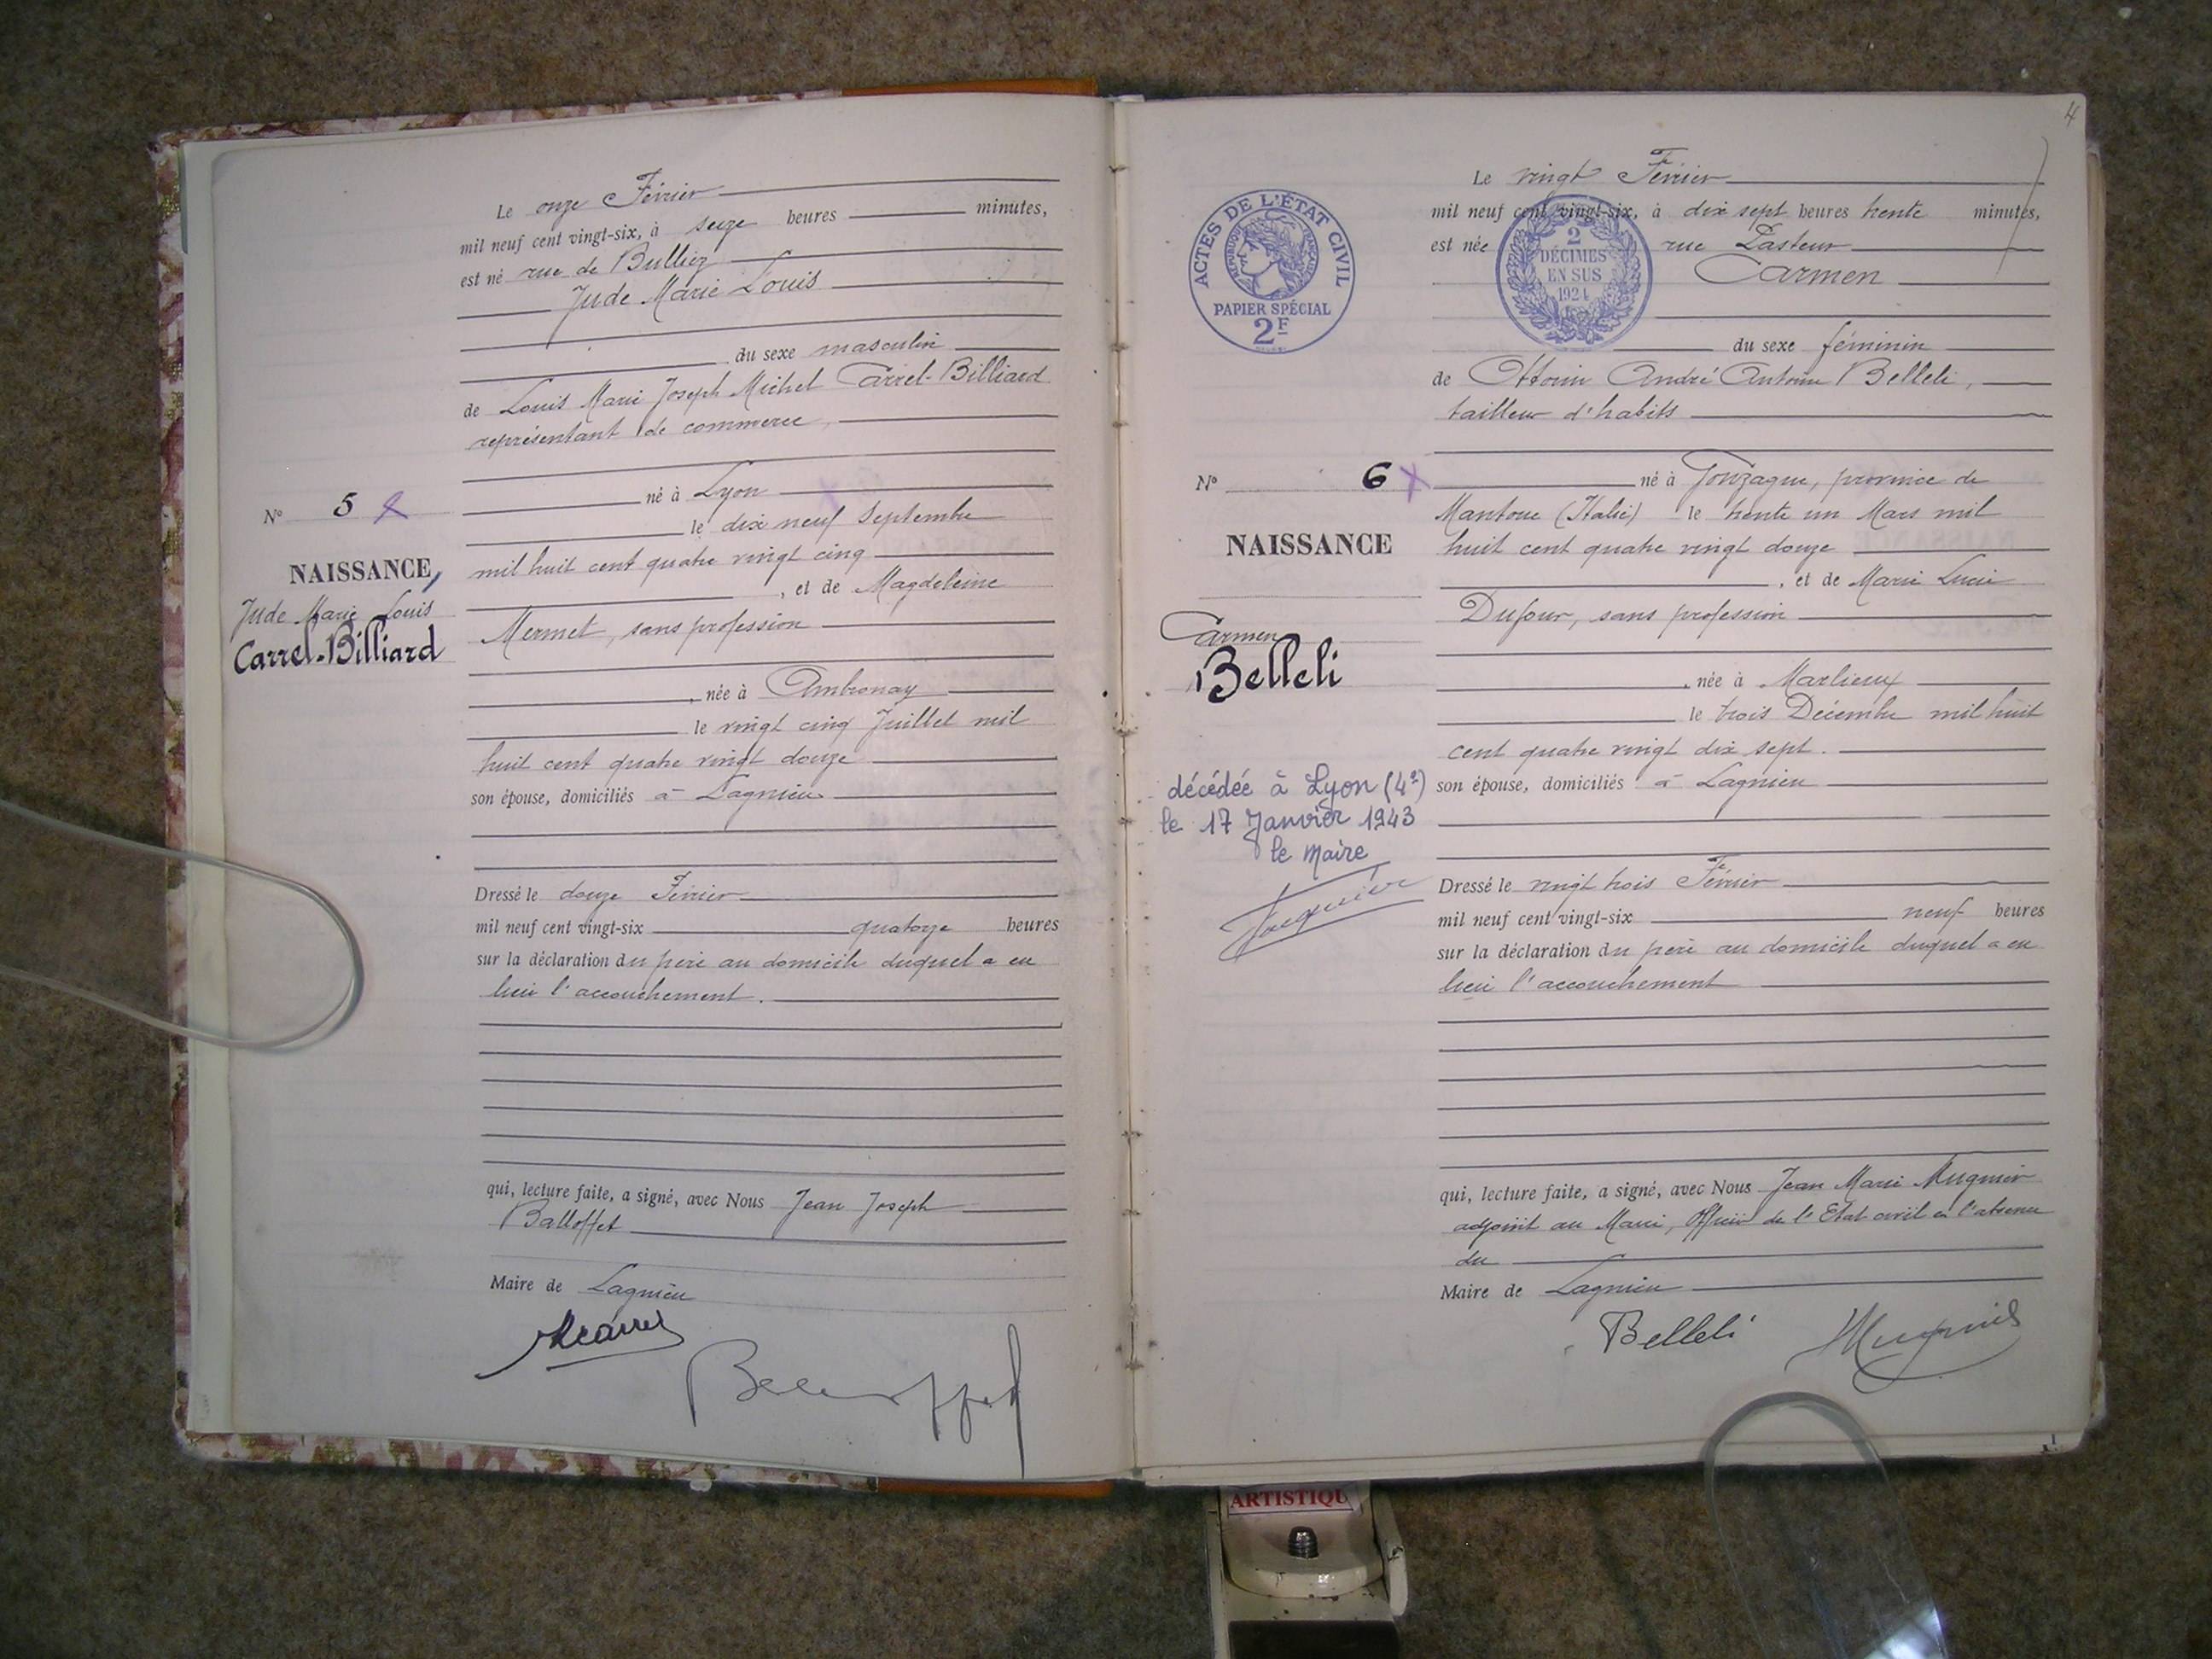 Le onze Février
mil neuf cent vingt-six, à seize heures minutes,
est né rue de Bulliez
Jude Marie Louis
du sexe masculin
de Louis Marie Joseph Michel Carrel-Billiard
représentant de commerce,
né à Lyon
le dix neuf Septembre
mil huit cent quatre vingt cinq
, et de Magdeleine
Mermet, sans profession
née à Ambronay
le vingt cinq Juillet mil
huit cent quatre vingt douze
son épouse, domiciliés à Lagnieu
Dressé le douze Février
mil neuf cent vingt-six quatorze heures
sur la déclaration du père au domicile duquel a eu
lieu l'accouchement.
qui, lecture faite, a signé, avec Nous Jean Joseph
Balloffet
Maire de Lagnieu
N° 5
NAISSANCE
Jude Marie Louis
Carrel-Billiard
4
Le vingt Février
mil neuf cent vingt-six, à dix sept heures trente minutes,
est née rue Pasteur
Carmen
du sexe féminin
de Ottorin André Antoine Belleli,
tailleur d'habits
né à Gonzague, province de
Mantoue (Italie) le trente un Mars mil
huit cent quatre vingt douze
, et de Marie Lucie
Dufour, sans profession
née à Marlieux
le trois Décembre mil huit
cent quatre vingt dix sept.
son épouse, domiciliés à Lagnieu
Dressé le vingt trois Février
mil neuf cent vingt-six neuf heures
sur la déclaration du père au domicile duquel a eu
lieu l'accouchement
qui, lecture faite, a signé, avec Nous Jean Marie Mugnier
adjoint au Maire, Officier de l'Etat civil en l'absence
du
Maire de Lagnieu
Belleli
ACTES DE L'ÉTAT CIVIL
RÉPUBLIQUE FRANÇAISE
PAPIER SPÉCIAL
2F
2
DÉCIMES
EN SUS
1924
N° 6
NAISSANCE
Carmen
Belleli
décédée à Lyon (4e)
le 17 Janvier 1943
le Maire
ARTISTIQU